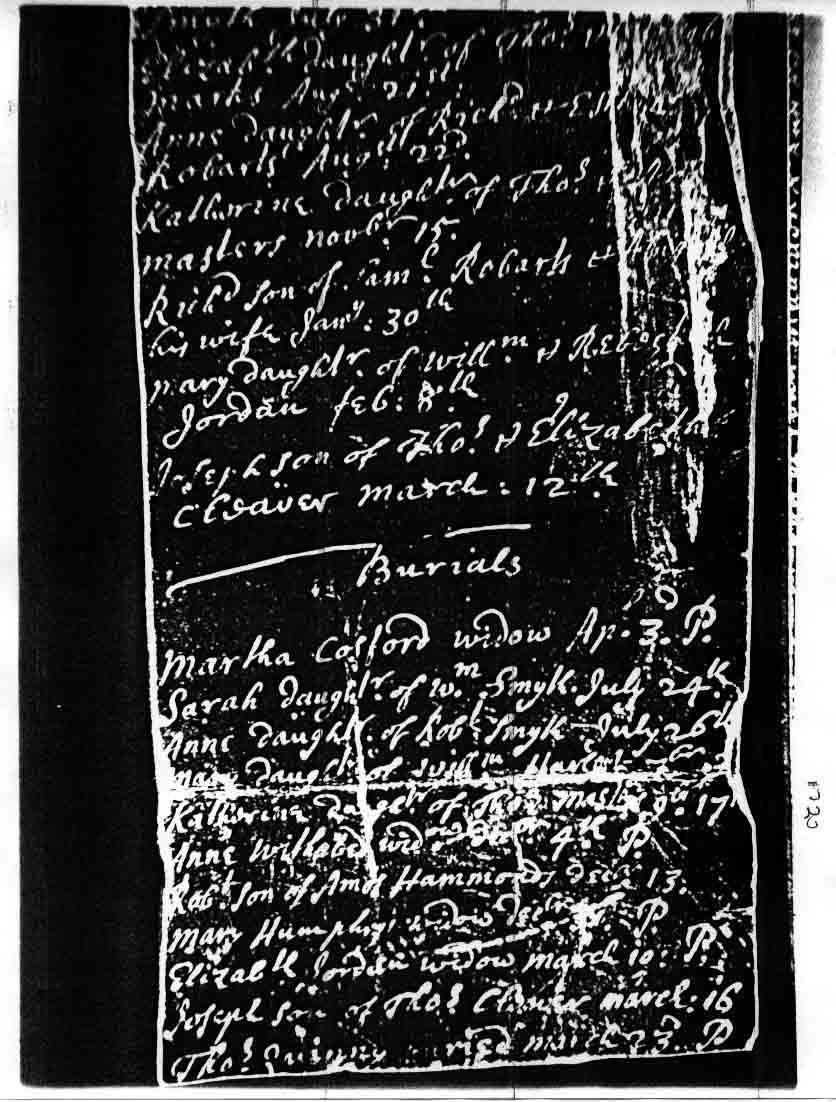 Elizabth daughtr of Thos
marks Augst 21st
Anne daughtr of Richd &
Robarts Augst 22d
Katherine daughtr of Thos &
masters novbr 15.
Richd son of Saml Robarts &
his wife Jany: 30th
mary daughtr. of Willm &
Jordan feb: 8th
Joseph son of Thos & Elizabeth
Cleaver march: 12th
Burials
Martha Cosford widow Ap. 3d. P.
Sarah daughtr. of Wm Smyth July 24th
Anne daughtr. of Robt Smyth July 26th
mary daughtr of Willm
Katherine daughtr of Thos 17
Anne widow 4th P.
Robt son of Amos Hammonds decr 13.
Mary Humphry widow decr P
Elizabth Jordan widow march 10: P.
Joseph son of Thos Cleaver march: 16
Thos Quinny buried march 23. P
1720